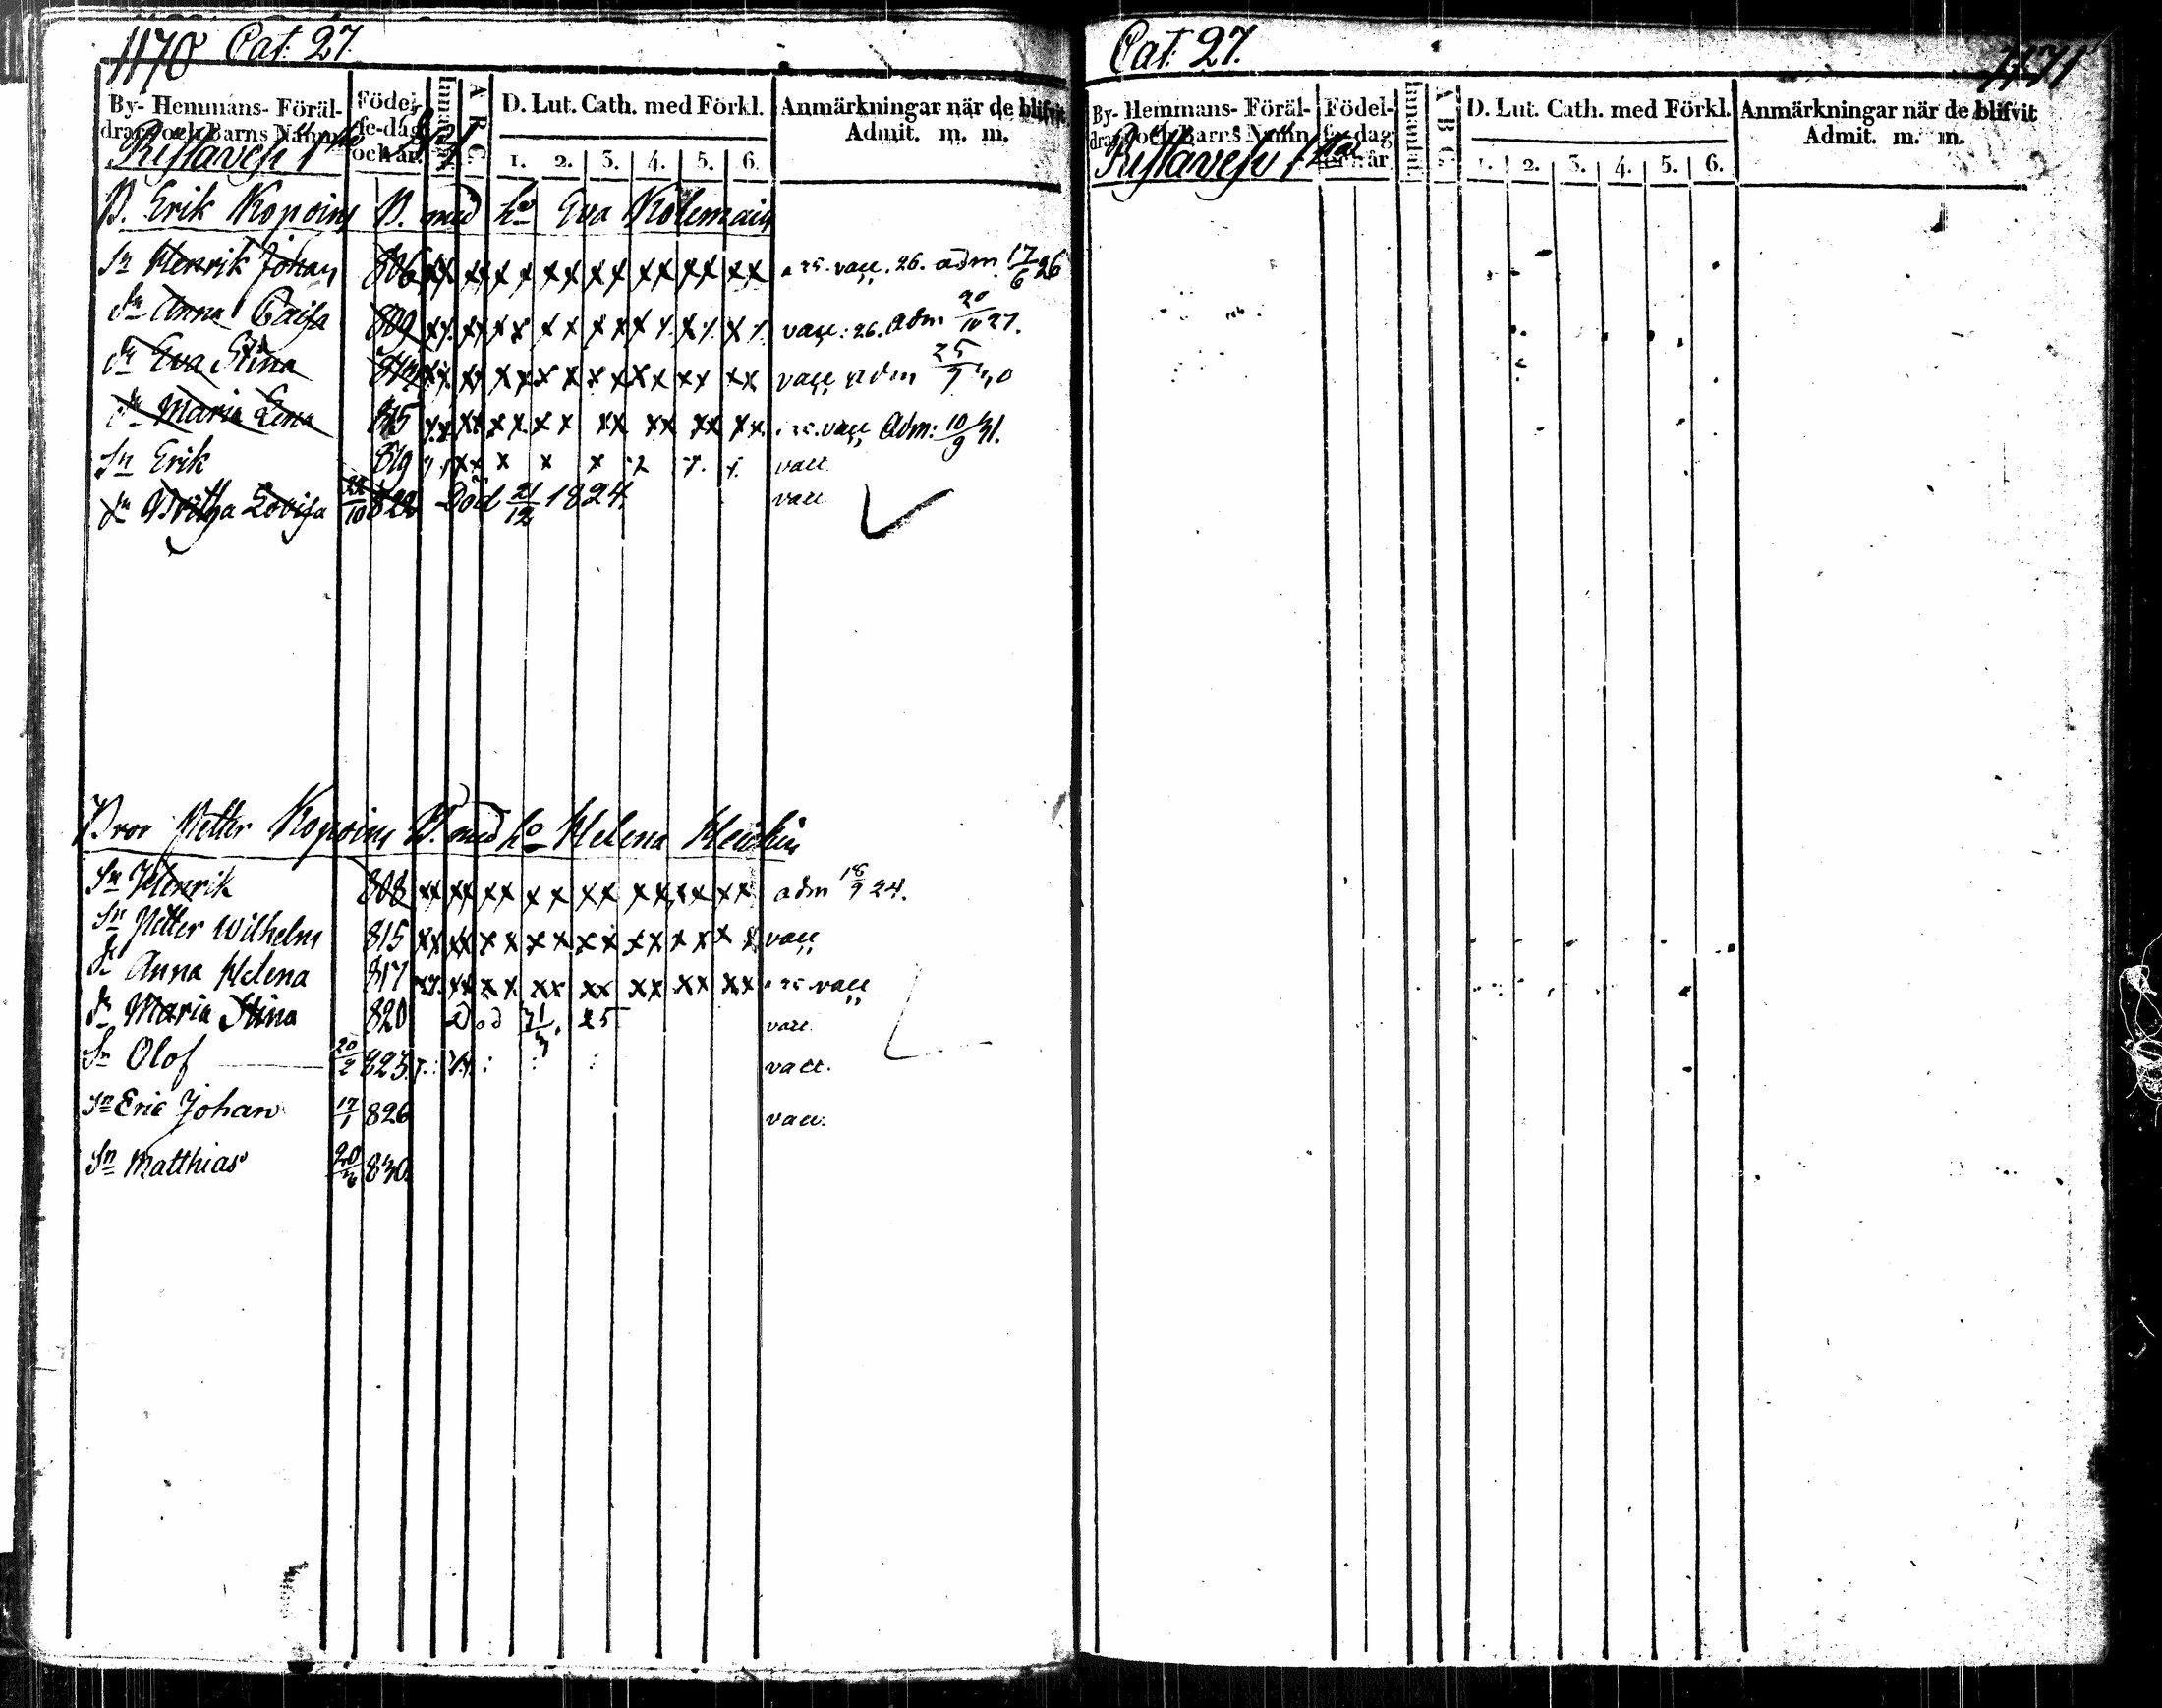 1170 Cat: 27.
By- Hemmans- Föräl-
drars och Barns Namn
Födel-
se-dag
och år.
A B C
D. Lut. Cath. med Förkl.
1. 2. 3. 4. 5. 6.
Anmärkningar när de blifvit
Admit. m. m.
Ristavesi 1
B. Erik Kopoin B. med h:o Eva Kolemain
Sn Henrik Johan 806 xx xx xx xx xx xx xx xx vacc. 26. adm 17/6 26
Dr Anna Caisa 809 vacc: 26. adm 20/10 27.
Dr Eva Stina vacc adm 25/9 30
Dr Maria Lena 815 vacc Adm: 10/9 31.
Sn Erik 819 vacc
Dr Britha Lovisa 22/10 822 Död 21/12 1824. vacc
Bror Petter Kopoin B. med h:o Helena Heiskin
Sn Henrik 808 xx xx xx xx xx xx xx xx adm 18/9 24.
Sn Petter Wilhelm 815 xx xx xx xx xx xx xx xx vacc
Dr Anna Helena 817 xx xx xx xx xx xx xx xx vacc
Dr Maria Stina 820 Död 31/3 25 vacc.
Sn Olof 20/2 823 vacc.
Sn Eric Johan 17/1 826 vacc.
Sn Matthias 830.
Cat. 27. 1171
By- Hemmans- Föräl-
drars och Barns Namn
Födel-
se-dag
och år.
Innanläs.
A B C
D. Lut. Cath. med Förkl.
1. 2. 3. 4. 5. 6.
Anmärkningar när de blifvit
Admit. m. m.
Ristavesi 1